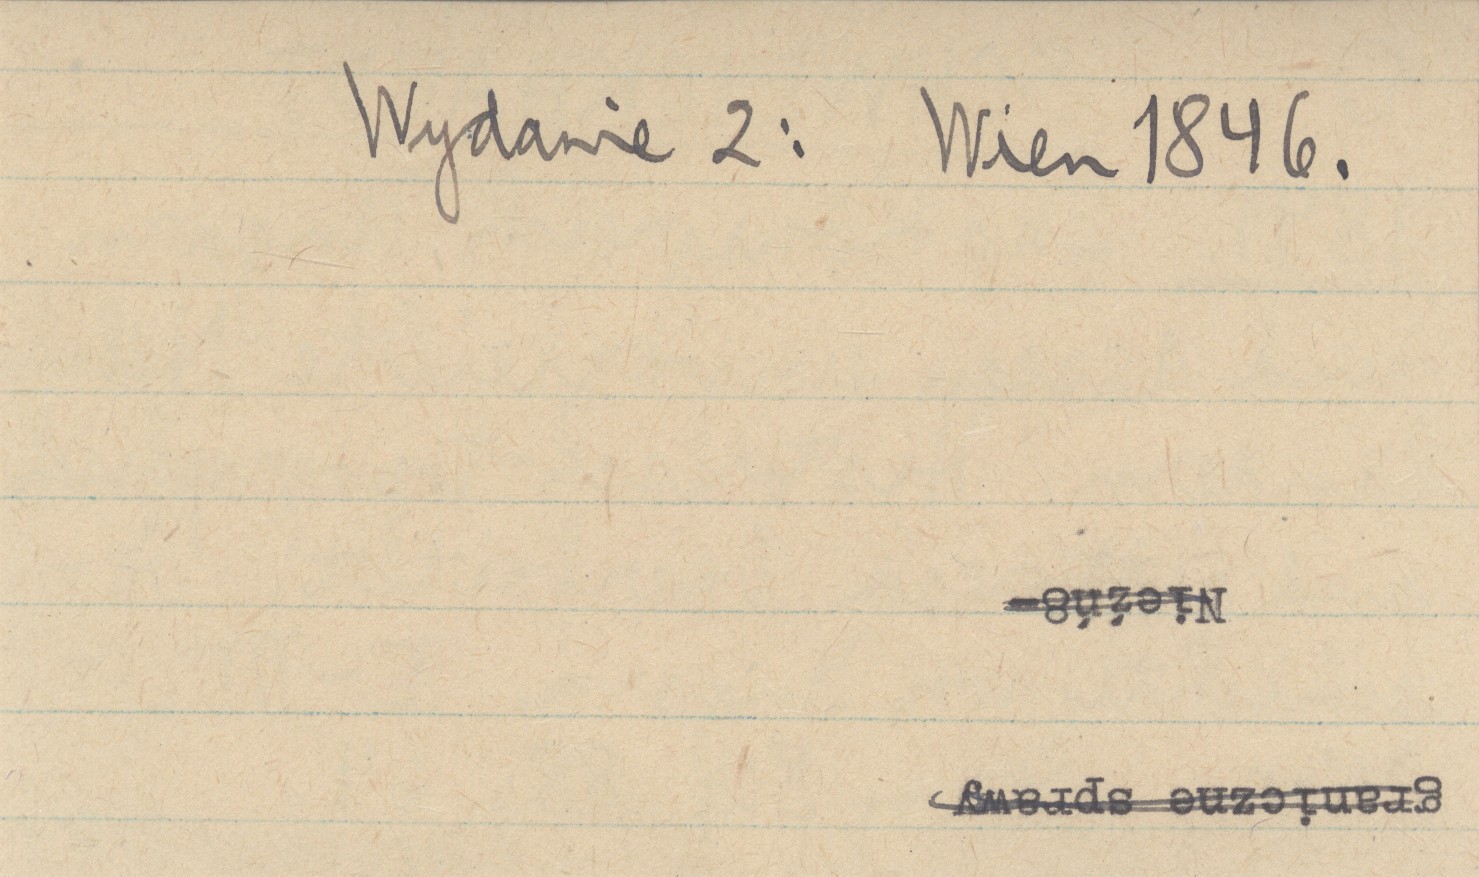 Wydanie 2: Wien 1846.
graniczne sprawy